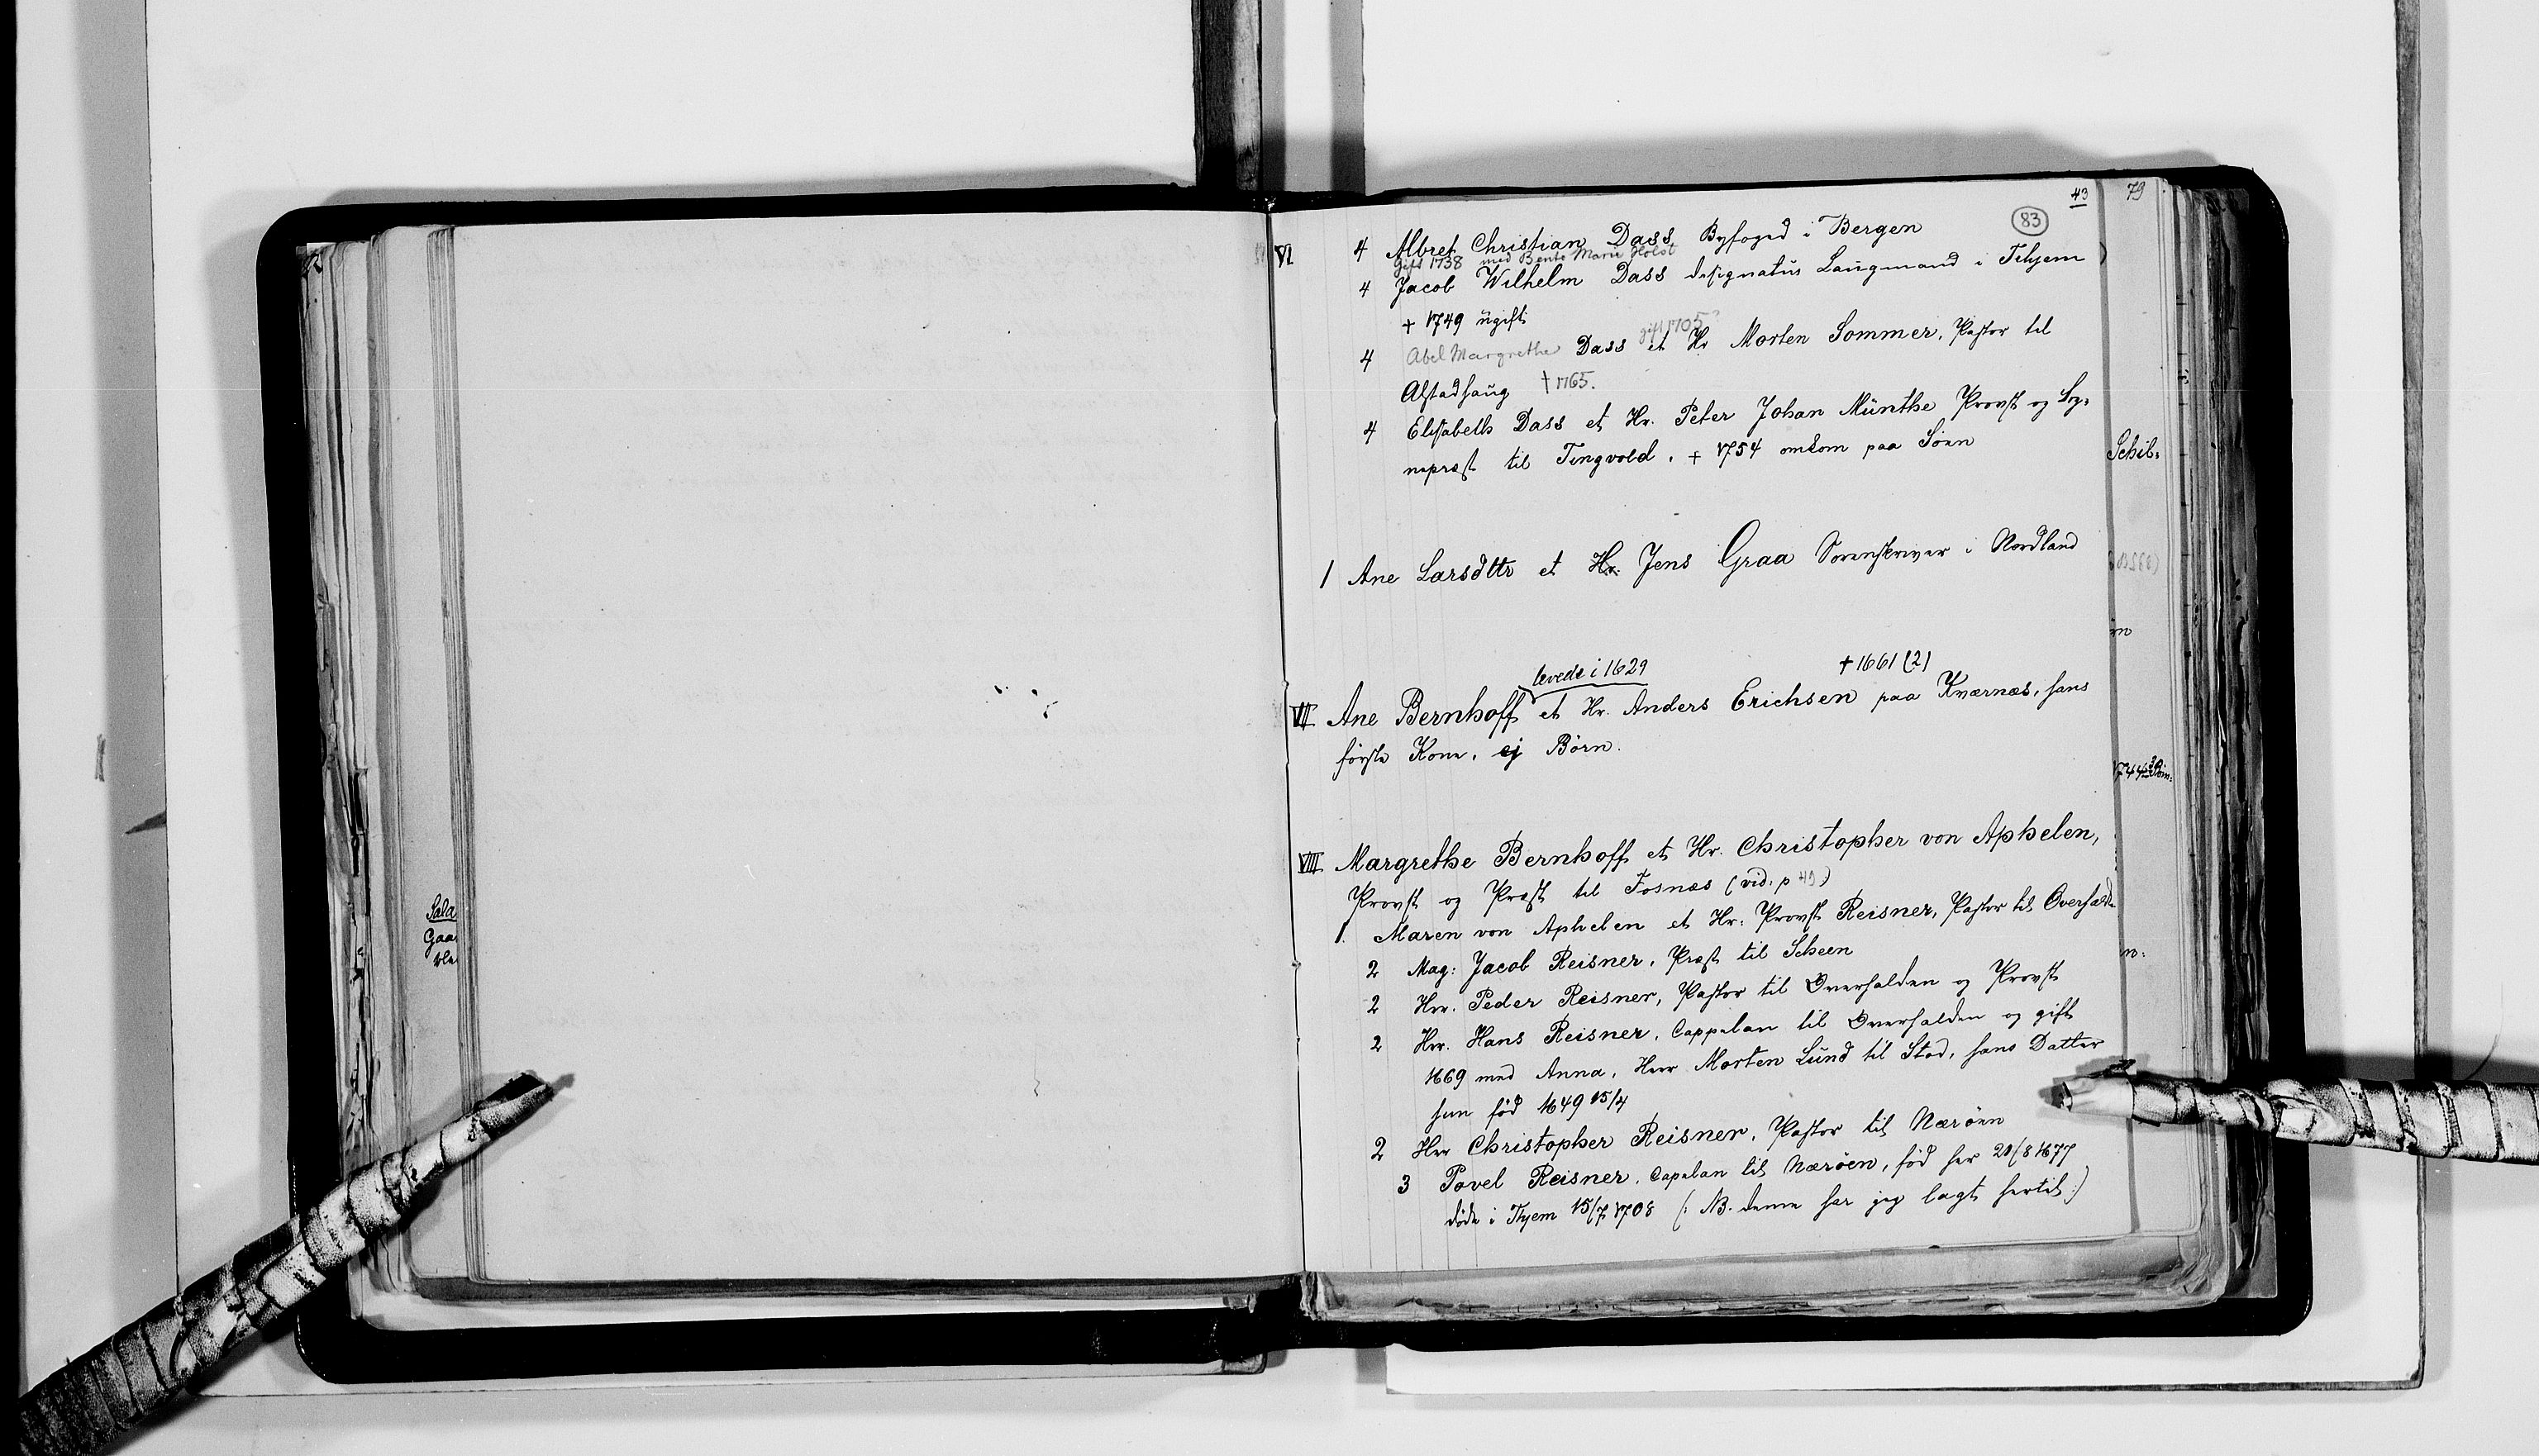 43
79
83
VI 4 Albret Christian Dass Byfoged i Bergen
gift 1738 med Bente Marie Holst
4 Jacob Wilhelm Dass designatus Laugmand i Trhjem
+ 1749 ugift
gift 1705?
4 Abel Margrethe Dass et Hr Morten Sommer, Pastor til
Alstadhaug † 1765.
4 Elisabeth Dass et Hr. Peter Johan Münthe Provst og Sog-
nepræst til Tingvold. + 1754 omkom paa Söen
Schil-
1 Ane Larsdttr et Hr. Jens Graa Sorenskriver i Nordland
levede i 1629 † 1661 (2)
VII Ane Bernhoff et Hr. Anders Erichsen paa Kværnæs, hans
første Kone, ej Börn.
VIII Margrethe Bernhoff et Hr. Christopher von Aphelen,
Provst og Præst til Fosnæs (vid. p 49.)
1. Maren von Aphelen et Hr: Provst Reisner, Pastor til Overhald
2 Mag: Jacob Reisner, Præst til Scheen
2 Hrr. Peder Reisner, Pastor til Overhalden og Provst
2 Hrr. Hans Reisner, Cappelan til Overhalden og gift
1669 med Anna, Herr Morten Lund til Stod, hans Datter
hun föd 1649 15/4
2 Herr Christopher Reisner, Pastor til Næröen
3 Povel Reisner, Capelan til Næröen, föd her 21/8 1677
döde i Thjem 15/7 1708 (: NB. denne har jeg lagt hertil :)
Sala
Gaa